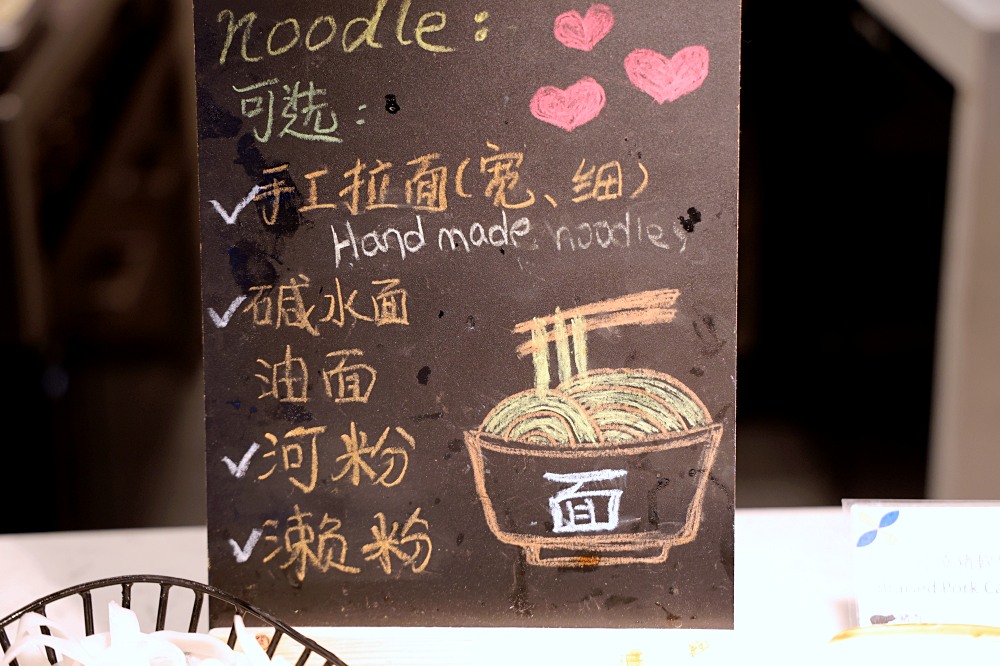 noodle:
可選:
✓手工拉面(宽、细)
Hand made noodles
✓碱水面
油面
✓河粉
✓濑粉
面